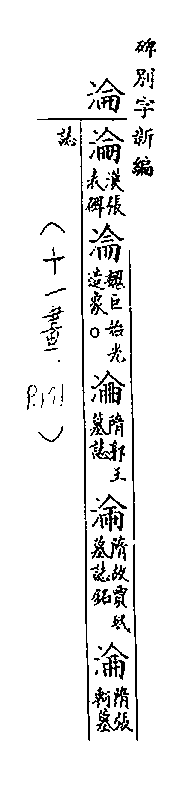 碑別字新編
淪
淪漢張表碑淪魏巨始光造象。淪隋郭王墓誌淪隋故賈玭墓誌銘淪隋張軻墓
誌
(十一畫.